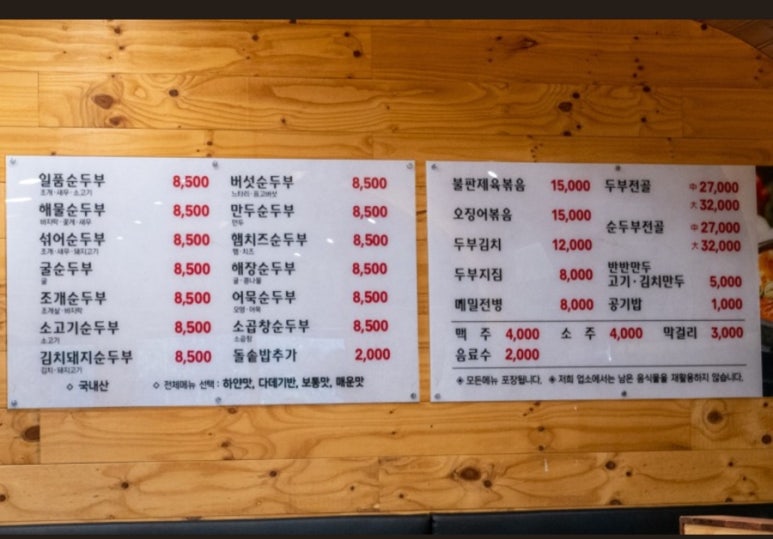 일품순두부 8,500
조개·새우·소고기
해물순두부 8,500
바지락·꽃게·새우
섞어순두부 8,500
조개·새우·돼지고기
굴순두부 8,500
굴
조개순두부 8,500
조개살·바지락
소고기순두부 8,500
소고기
김치돼지순두부 8,500
김치·돼지고기
버섯순두부 8,500
느타리·표고버섯
만두순두부 8,500
만두
햄치즈순두부 8,500
햄·치즈
해장순두부 8,500
굴·콩나물
어묵순두부 8,500
오뎅·어묵
소곱창순두부 8,500
소곱창
돌솥밥추가 2,000
◇ 국내산 ◇ 전체메뉴 선택 : 하얀맛, 다데기반, 보통맛, 매운맛
불판제육볶음 15,000
오징어볶음 15,000
두부김치 12,000
두부지짐 8,000
메밀전병 8,000
두부전골 中 27,000
大 32,000
순두부전골 中 27,000
大 32,000
반반만두
고기·김치만두 5,000
공기밥 1,000
맥 주 4,000 소 주 4,000 막걸리 3,000
음료수 2,000
◈ 모든메뉴 포장됩니다. ◈ 저희 업소에서는 남은 음식물을 재활용하지 않습니다.